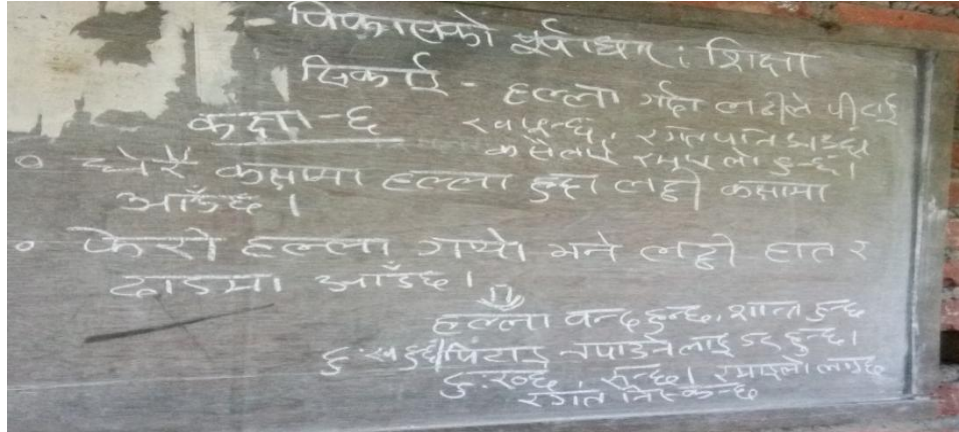 विकासको पूर्वाधार : शिक्षा
सिकाई - हल्ला गर्दा लठ्ठीले पीटाई
कक्षा-६ खपुन्छ, रगत पनि आउँछ
कसैलाई रमाइलो हुन्छ।
० धेरै कक्षामा हल्ला हुदा लठ्ठी कक्षामा
आउँछ।
० फेरी हल्ला गर्‍यो भने लठ्ठी हात र
ढाडमा आउँछ।
हल्ला बन्द हुन्छ, शान्त हुन्छ
दुःख हुन्छ पिटाइ नपाउनेलाई हुन्छ।
दुःख्छ, रुन्छ। रमाइलो लाग्छ
रगत निस्कन्छ